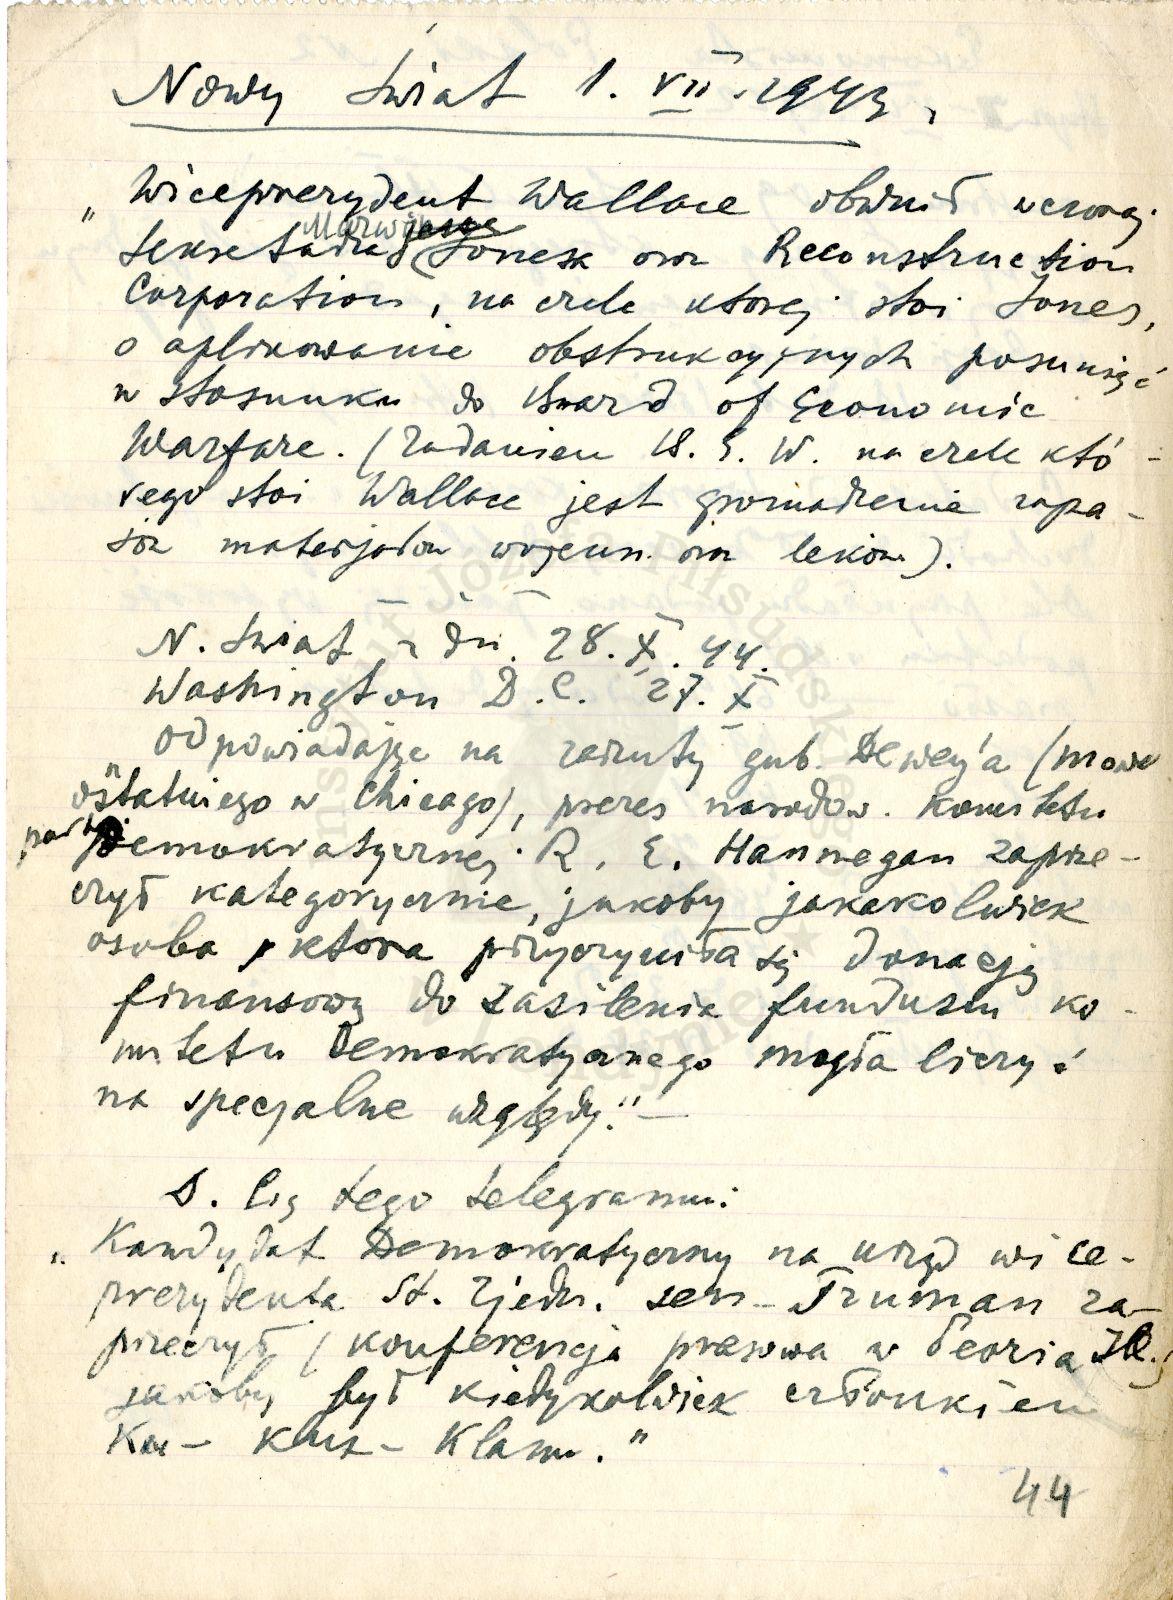 Nowy Świat 1. VII. 1943.
„Wiceprezydent Wallace obwinił wczoraj
Sekretarza Jonesa oraz Reconstruction
Corporation, na czele ktorej stoi Jones,
o aplikowanie obstrukcyjnych posunięć
w stosunku do Board of Economic
Warfare. (Zadaniem B. E. W. na czele któ-
rego stoi Wallace jest gromadzenie zapa-
sów materjałów wojenn. oraz leków).
N. Świat z dn. 28. X. 44.
Washington D.C. 27. X
Odpowiadając na zarzuty gub. Dewey'a (mowa
ostatniego w Chicago), prezes narodow. komitetu
partji
Demokratycznej R. E. Hannegan zaprze-
czył kategorycznie, jakoby jakakolwiek
osoba, ktora przyczyniła się donacją
finansową do zasilenia funduszu ko-
mitetu Demokratycznego mogła liczyć
na specjalne względy.“ —
D. Ciąg tego telegramu:
„Kandydat Demokratyczny na urząd wice-
prezydenta St. Zjedn. sen. Truman za-
przeczył (konferencja prasowa w Peoria Ill.)
jakoby był kiedykolwiek członkiem
Ku - Klux - Klanu.“
44